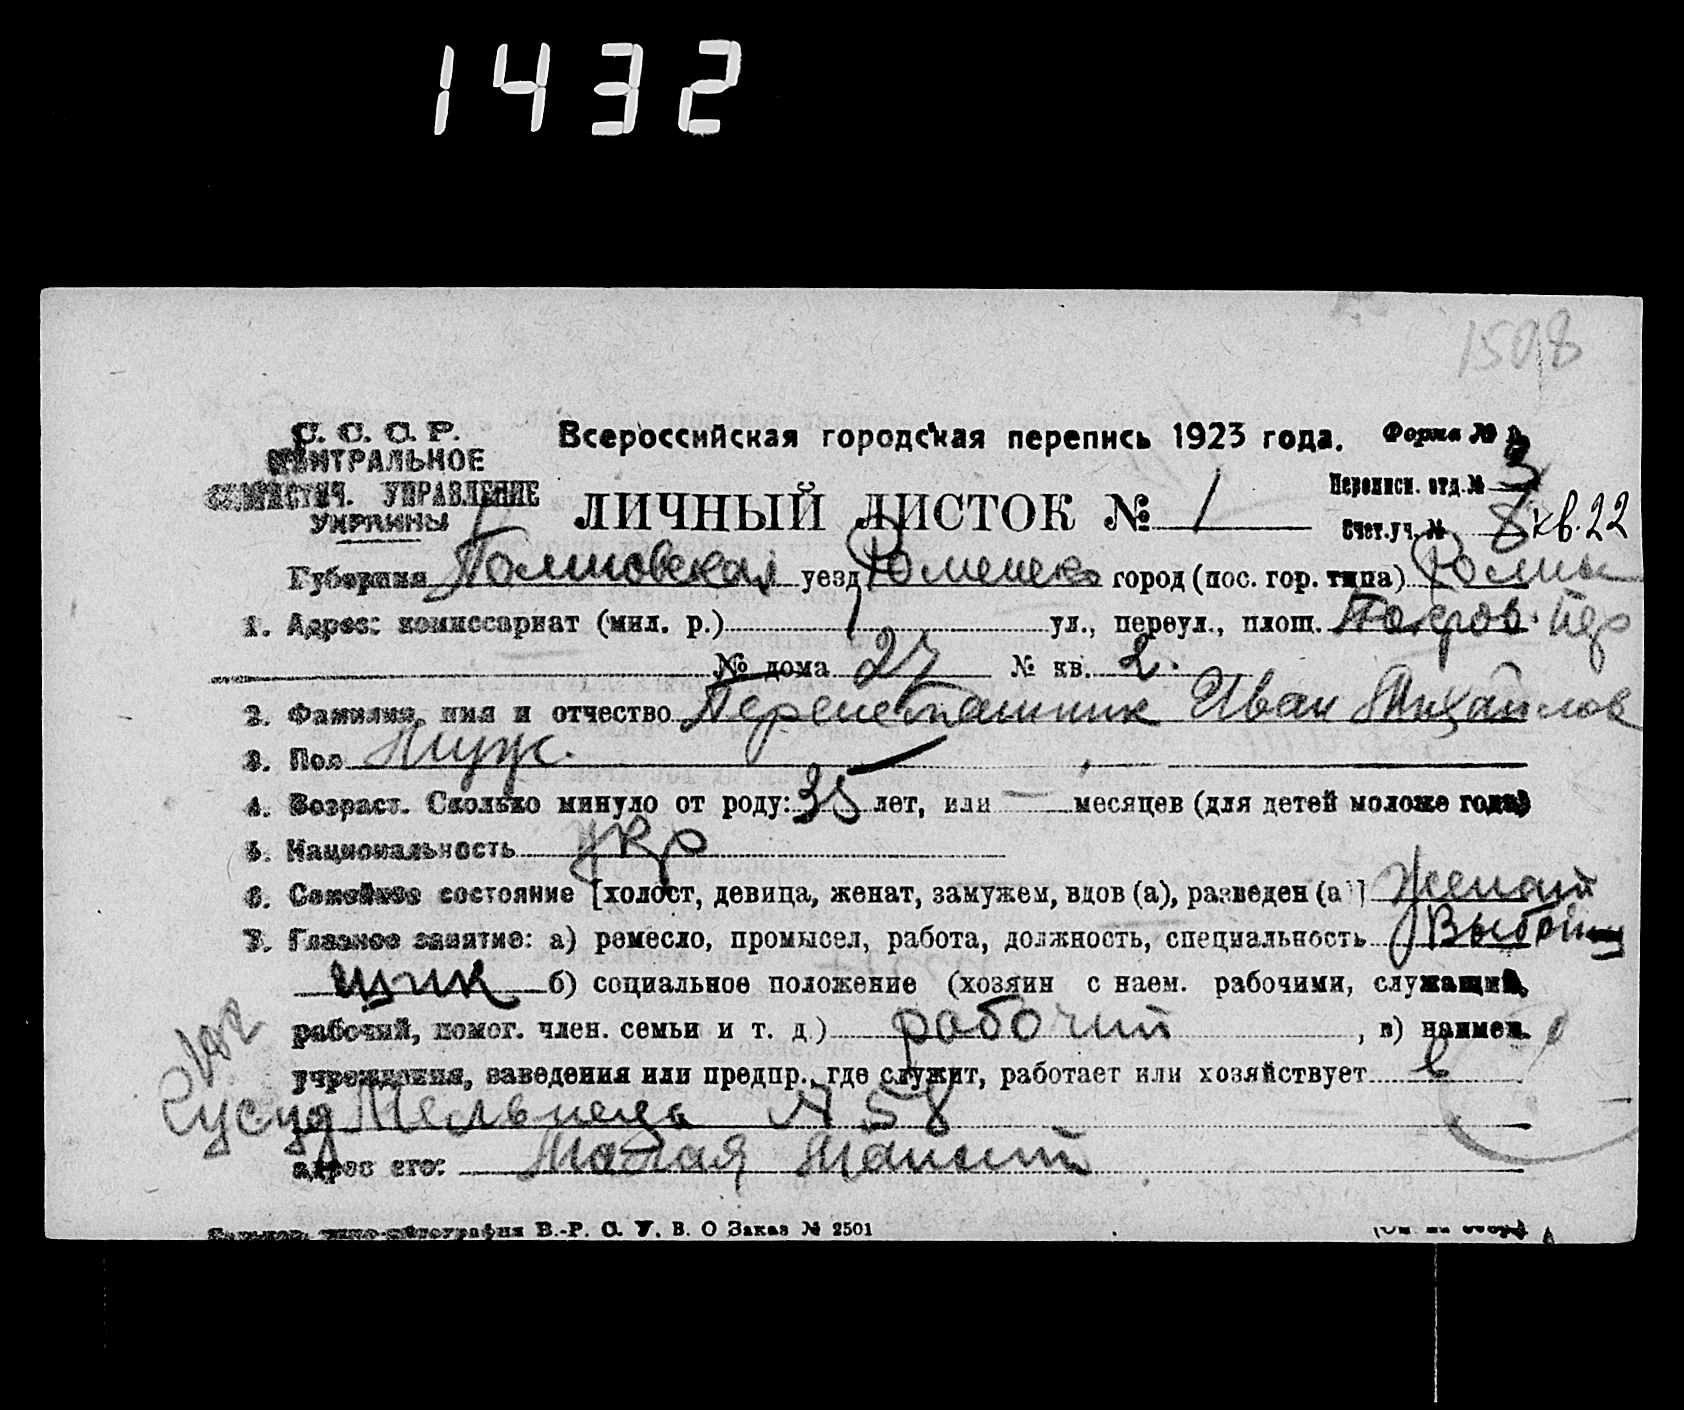 1432
1508
С. С. С. Р.
ЦЕНТРАЛЬНОЕ
СТАТИСТИЧ. УПРАВЛЕНИЕ
УКРАИНЫ
Всероссийская городская перепись 1923 года. Форма №
ЛИЧНЫЙ ЛИСТОК № 1
Переписн. отд. № 3
Счет. уч. № 8 кв. 22
Губерния Полтовская уезд Роменск город (пос. гор. типа) Ромны
1. Адрес: комиссариат (мил. р.) ул., переул., площ. Покров. Пер
№ дома 27 № кв. 2.
2. Фамилия, имя и отчество Иван Михайлов
3. Пол Муж.
4. Возраст. Сколько минуло от роду: 35 лет, или — месяцев (для детей моложе года)
5. Национальность укр
6. Семейное состояние [холост, девица, женат, замужем, вдов (а), разведен (а)] Женат
7. Главное занятие: а) ремесло, промысел, работа, должность, специальность Выбой
щик б) социальное положение (хозяин с наем. рабочими, служащий,
рабочий, помог. член. семьи и т. д.) рабочий, в) наимен.
учреждения, заведения или предпр., где служит, работает или хозяйствует в
Мельнеца № 58
адрес его: Малая
В.-Р. С. У. В. О Заказ № 2501